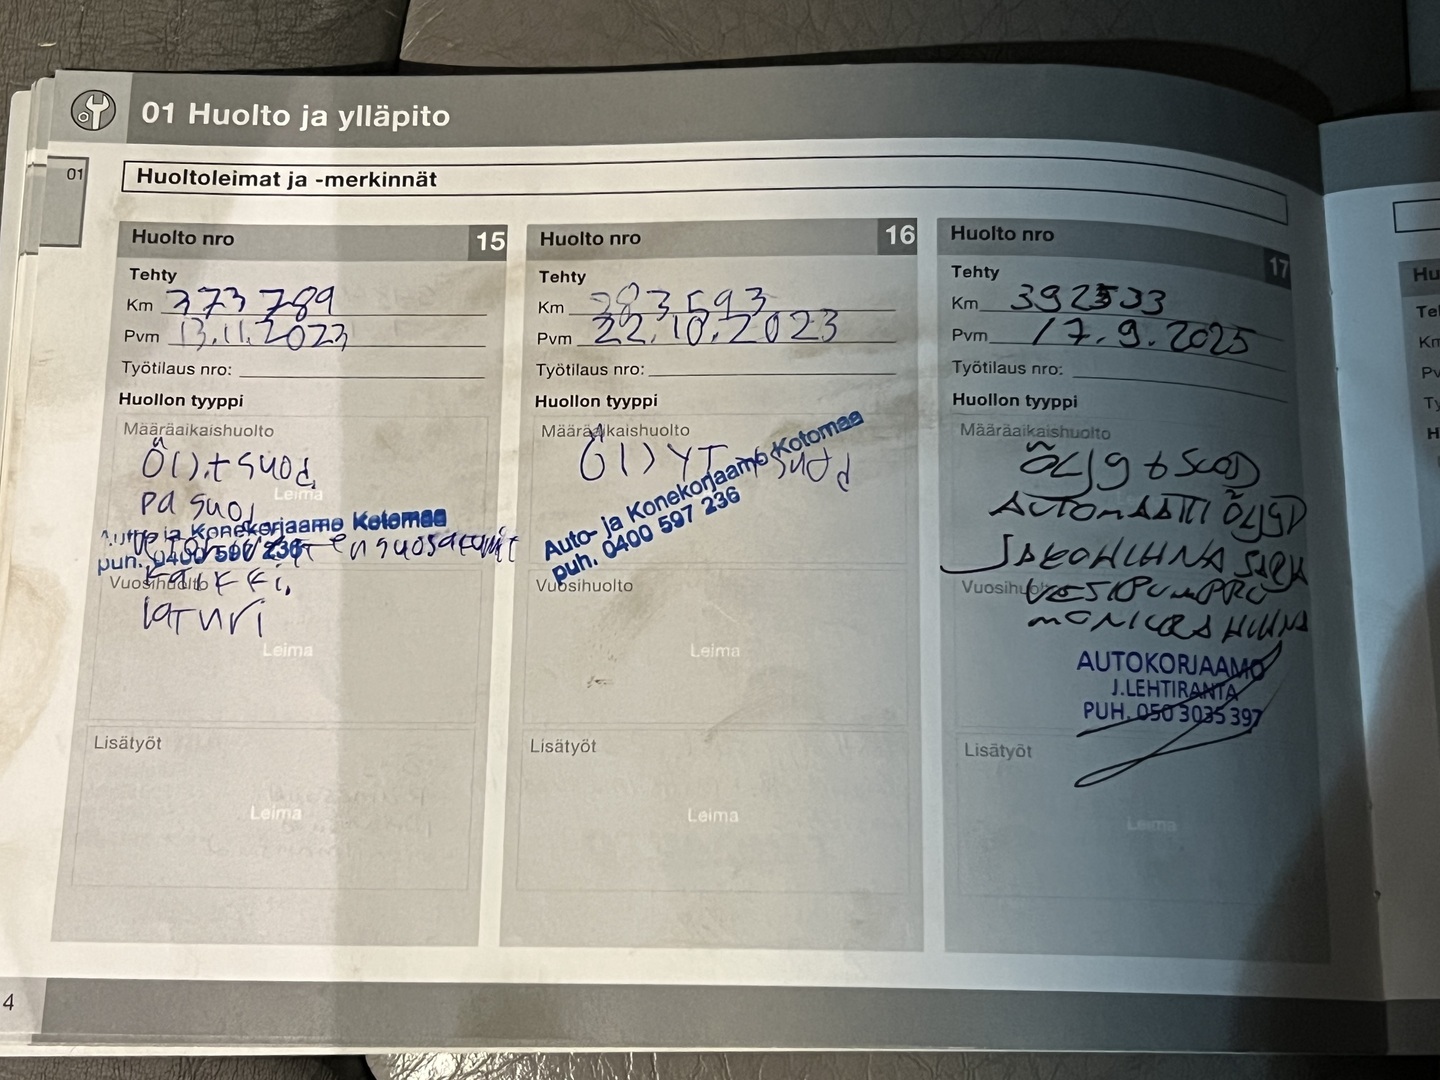 01 Huolto ja ylläpito
01
Huoltoleimat ja -merkinnät
Huolto nro 15
Tehty
Km 373 789
Pvm 13.11.2023
Työtilaus nro:
Huollon tyyppi
Määräaikaishuolto
Öl).t suod.
pa suod
Leima
Auto- ja Konekorjaamo Kotomaa
puh. 0400 597 236
Vuosihuolto
kaikki.
laturi
Leima
Lisätyöt
Leima
Huolto nro 16
Tehty
Km 383 593
Pvm 22.10.2023
Työtilaus nro:
Huollon tyyppi
Määräaikaishuolto
Öl)yt suod
Auto- ja Konekorjaamo Kotomaa
puh. 0400 597 236
Vuosihuolto
Leima
Lisätyöt
Leima
Huolto nro 17
Tehty
Km 392533
Pvm 17.9.2025
Työtilaus nro:
Huollon tyyppi
Määräaikaishuolto
ÖLJY + SUOD
AUTOMAATTI ÖLJYT
JAKOHIHNA SARJA
Vuosihuolto
VESIPUMPPU
MONIURAHIHNA
AUTOKORJAAMO
J.LEHTIRANTA
PUH. 050 3035 397
Lisätyöt
Leima
4
Hu
Te
Km
Pv
Ty
H